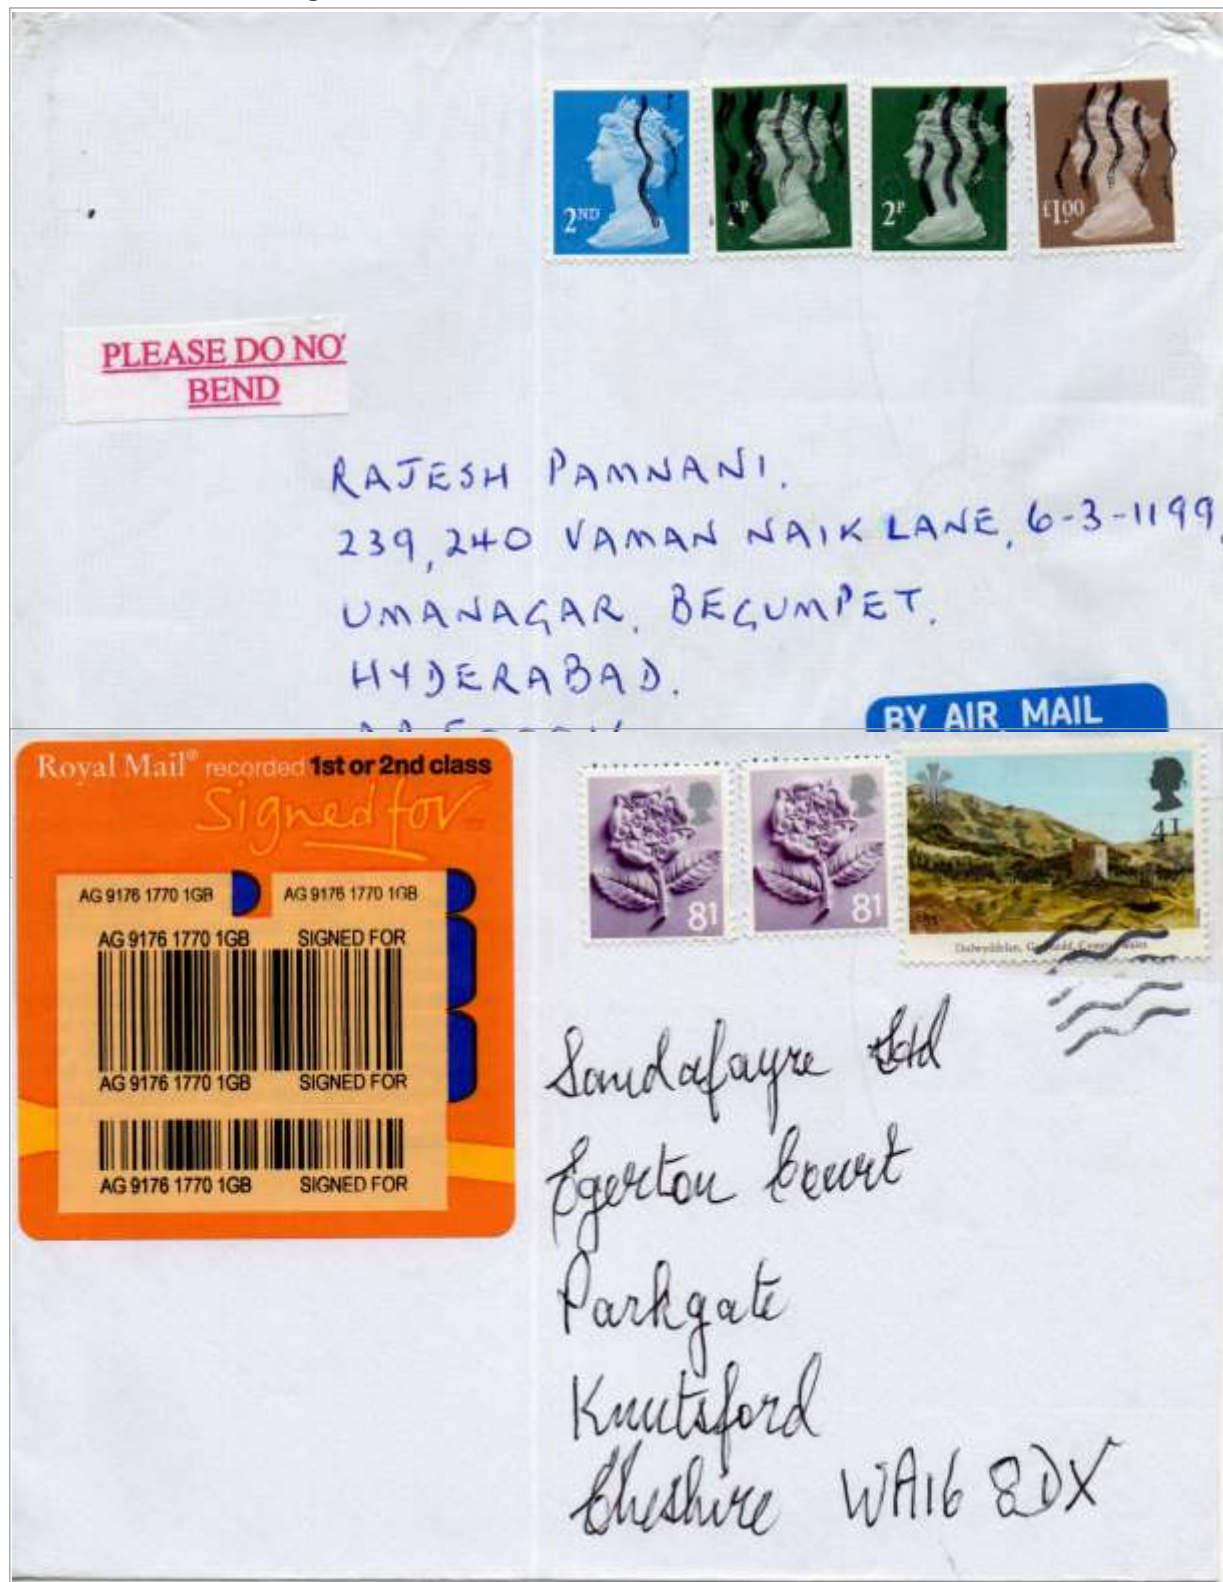 2ND
2P
2P
£1.00
PLEASE DO NO
BEND
RAJESH PAMNANI.
239, 240 VAMAN NAIK LANE, 6-3-1199,
UMANAGAR, BEGUMPET.
HYDERABAD.
BY AIR MAIL
Royal Mail® recorded 1st or 2nd class
Signed for
81
81
41
AG 9176 1770 1GB AG 9176 1770 1GB
AG 9176 1770 1GB SIGNED FOR
AG 9176 1770 1GB SIGNED FOR
AG 9176 1770 1GB SIGNED FOR
Sandafayre Ltd
Egerton Court
Parkgate
Knutsford
Cheshire WA16 8DX